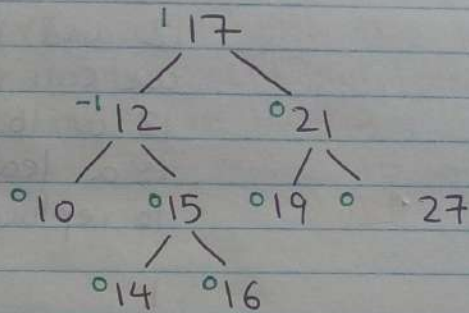 1 17
-1 12 0 21
0 10 0 15 0 19 0 27
0 14 0 16